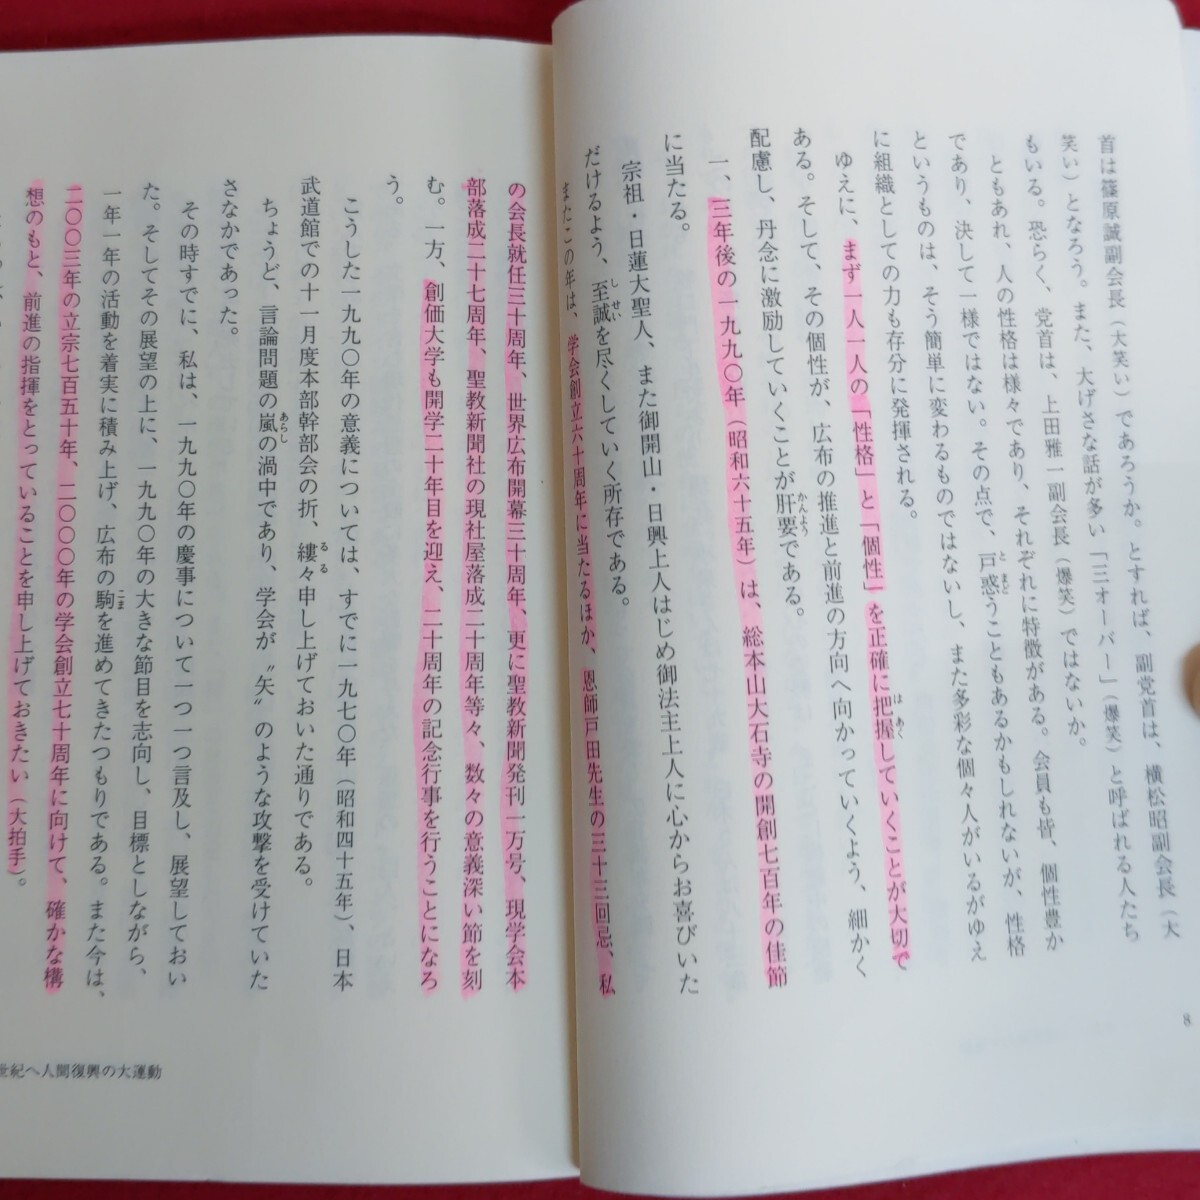 首は篠原誠副会長（大笑い）であろうか。とすれば、副党首は、横松昭副会長（大
笑い）となろう。また、大げさな話が多い「三オーバー」（爆笑）と呼ばれる人たち
もいる。恐らく、党首は、上田雅一副会長（爆笑）ではないか。
ともあれ、人の性格は様々であり、それぞれに特徴がある。会員も皆、個性豊か
であり、決して一様ではない。その点で、戸惑うこともあるかもしれないが、性格
というものは、そう簡単に変わるものではないし、また多彩な個々人がいるがゆえ
に組織としての力も存分に発揮される。
ゆえに、まず一人一人の「性格」と「個性」を正確に把握していくことが大切で
ある。そして、その個性が、広布の推進と前進の方向へ向かっていくよう、細かく
配慮し、丹念に激励していくことが肝要である。
一、三年後の一九九〇年（昭和六十五年）は、総本山大石寺の開創七百年の佳節
に当たる。
宗祖・日蓮大聖人、また御開山・日興上人はじめ御法主上人に心からお喜びいた
だけるよう、至誠を尽くしていく所存である。
またこの年は、学会創立六十周年に当たるほか、恩師戸田先生の三十三回忌、私
8
の会長就任三十周年、世界広布開幕三十周年、更に聖教新聞発刊一万号、現学会本
部落成二十七周年、聖教新聞社の現社屋落成二十周年等々、数々の意義深い節を刻
む。一方、創価大学も開学二十年目を迎え、二十周年の記念行事を行うことになろ
う。
こうした一九九〇年の意義については、すでに一九七〇年（昭和四十五年）、日本
武道館での十一月度本部幹部会の折、縷々申し上げておいた通りである。
ちょうど、言論問題の嵐の渦中であり、学会が〝矢〟のような攻撃を受けていた
さなかであった。
その時すでに、私は、一九九〇年の慶事について一つ一つ言及し、展望しておい
た。そしてその展望の上に、一九九〇年の大きな節目を志向し、目標としながら、
一年一年の活動を着実に積み上げ、広布の駒を進めてきたつもりである。また今は、
二〇〇三年の立宗七百五十年、二〇〇〇年の学会創立七十周年に向けて、確かな構
想のもと、前進の指揮をとっていることを申し上げておきたい（大拍手）。
世紀へ人間復興の大運動